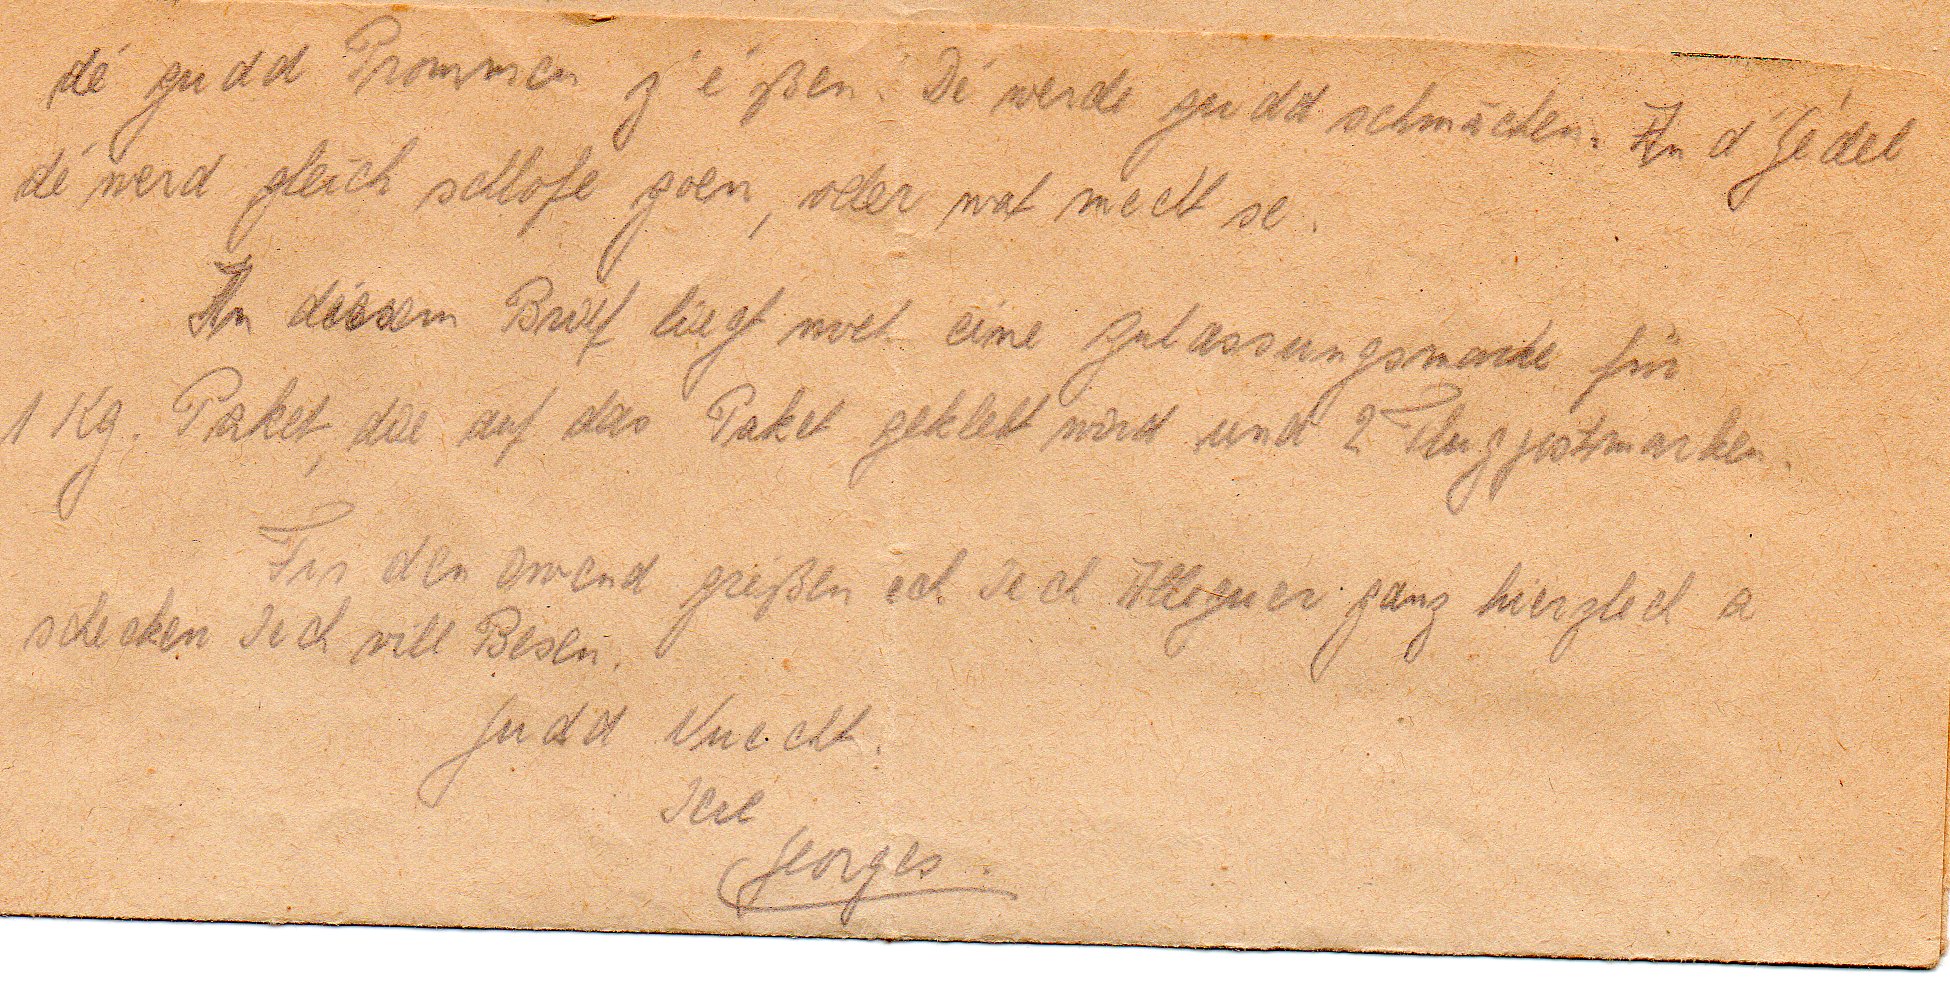 dé gudd Prommen z'éßen. Dé werde gudd schmäcken. An d'Gédel
dé werd gleich schlofe goen, oder wat mecht se.
An diesem Brief liegt noch eine Zulassungsmarke für
1 Kg. Paket, die auf das Paket geklebt wird und 2 Flugpostmarken.
Fir den Owend greißen ech Iech Alleguer ganz hierzlech a
schecken Iech vill Besen.
Gudd Nuecht.
Iere
Georges.